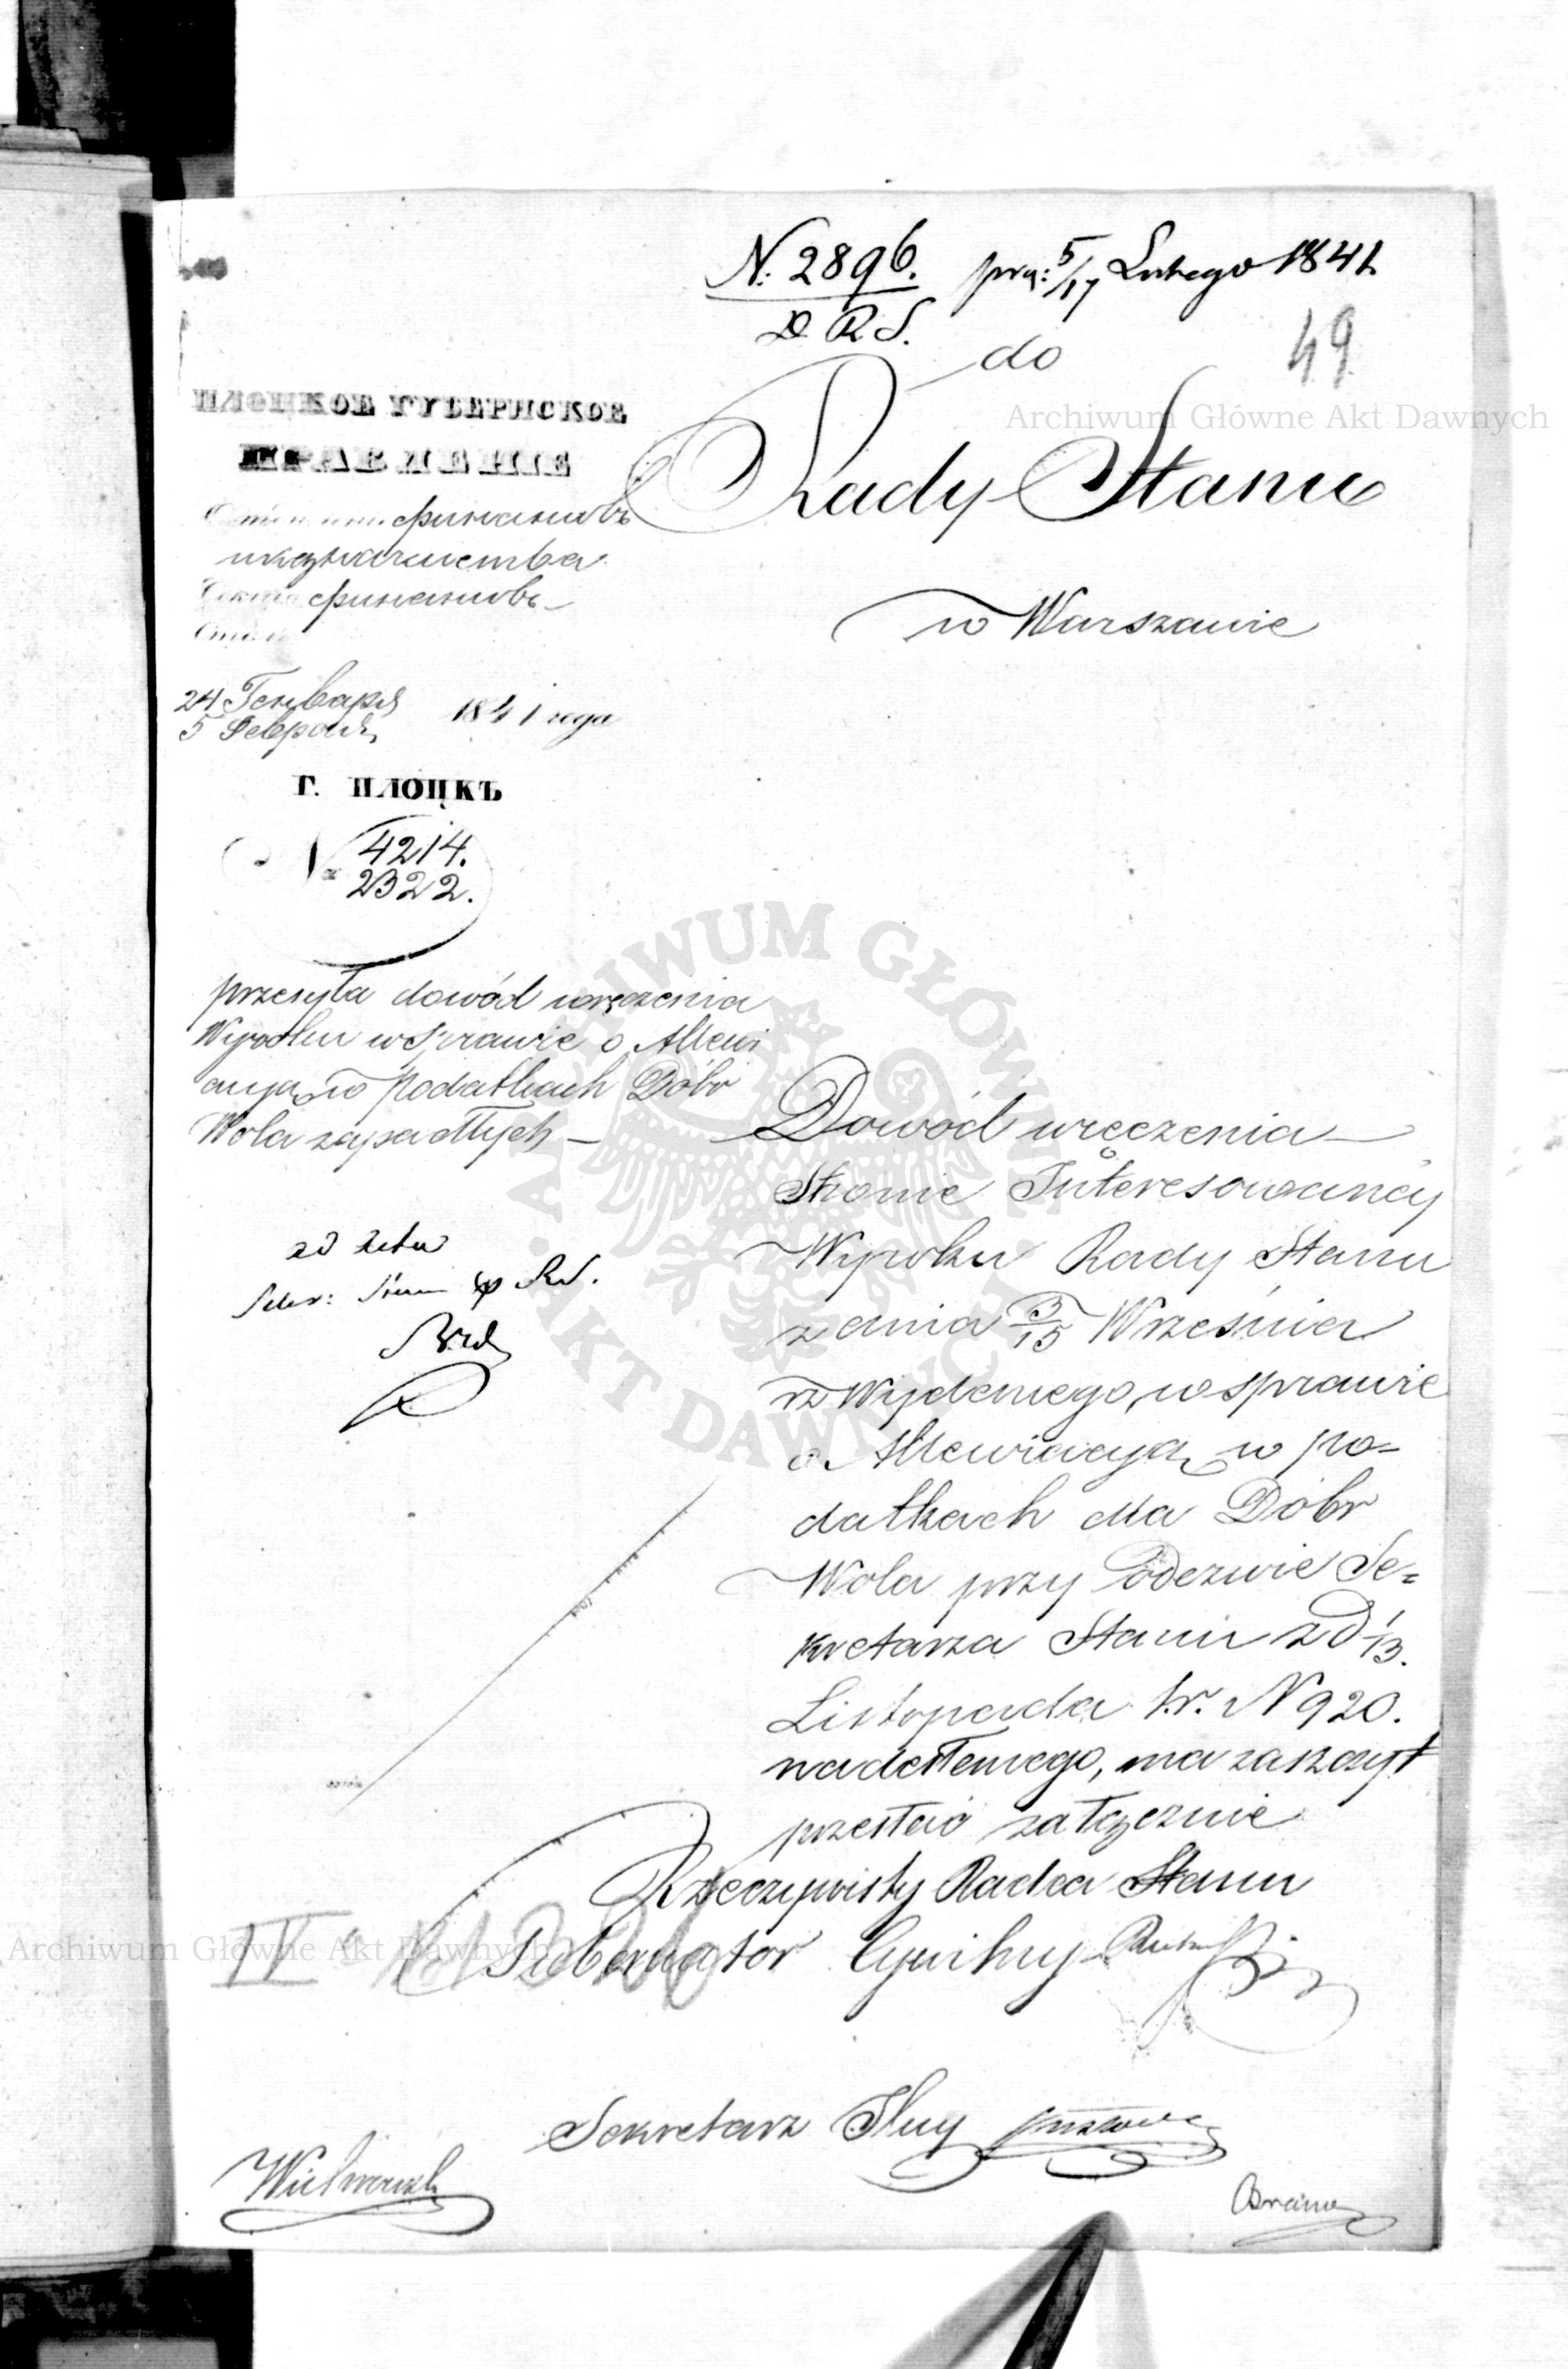 N. 2896.
D R S.
prz: 5/17 Lutego 1841
49
do
Rady Stanu
w Warszawie
ПЛОЦКОЕ ГУБЕРНСКОЕ
ПРАВЛЕНІЕ
финансовъ
и казначейства
финансовъ
24 Генваря
5 Февраля
1841 года
Г. ПЛОЦКЪ
N 4214.
2322.
przesyła dowód wręczenia
Wyroku w Sprawie o Allewi
acyą w podatkach Dóbr
Wola zapadłych —
ad acta
Dowód wręczenia —
Stronie Interesowaney
Wyroku Rady Stanu
z dnia 3/15 Września
rz Wydanego, w sprawie
o Allewiacyą w po-
datkach dla Dóbr
Wola przy Odezwie Se-
kretarza Stanu z d 1/13.
Listopada t.r. N 920.
nadesłanego, ma zaszczyt
przesłać załącznie
Rzeczywisty Radca Stanu
Gubernator Cywilny
IV
Sekretarz Jlny
Archiwum Główne Akt Dawnych
Archiwum Główne Akt Dawnych
ARCHIWUM GŁÓWNE · AKT DAWNYCH ·